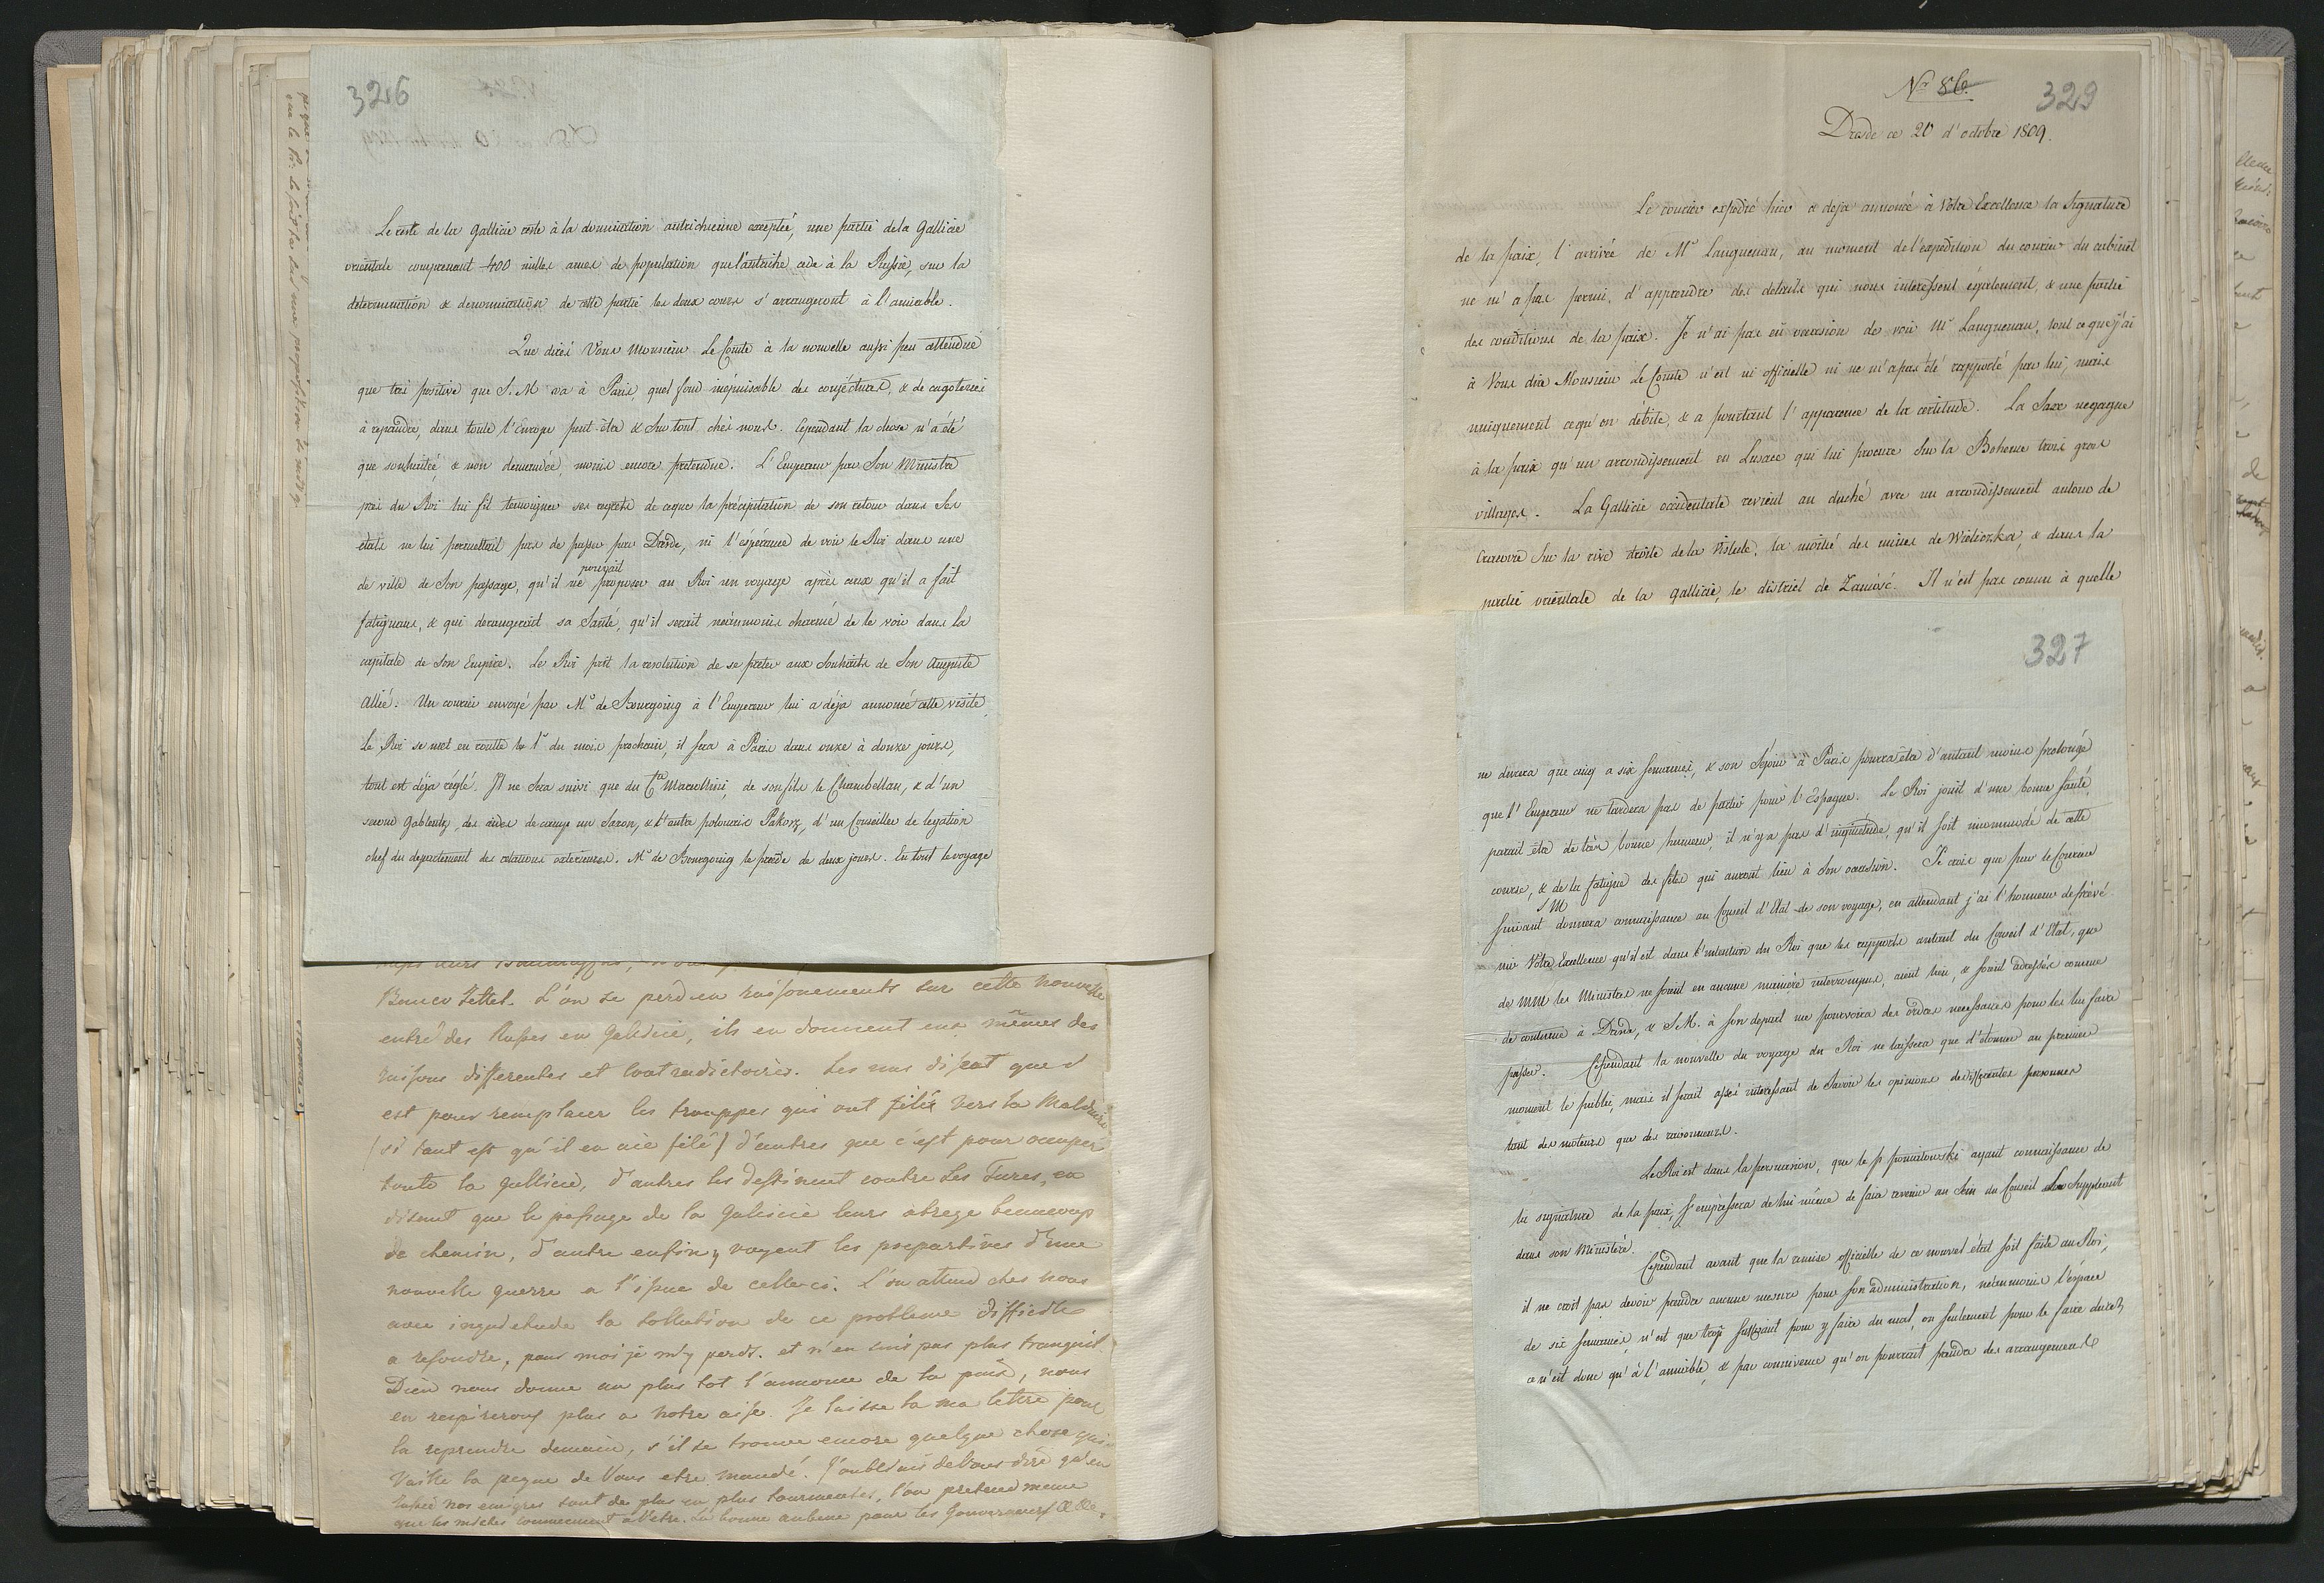 326
Le reste de la Gallicie reste à la domination autrichienne exceptée, une partie de la Gallicie
orientale comprenant 400 milles ames de population que l'autriche cede à la Russie, sur la
determination & denomination de cette partie les deux cours s'arrangeront à l'amiable.
Que dirés Vous Monsieur Le Comte à la nouvelle aussi peu attendue
que très positive que S. M va à Paris, quel fond inépuisable des conjectures, & de cagoteries
à repandre, dans toute l'Europe peut-être & sur tout chés nous. Cependant la chose n'a été
que souhaitée, & non demandée, moins encore pretendue. L'Empereur par Son Ministre
près du Roi lui fit temoigner ses regrets de ceque la précipitation de son retour dans Ses
états ne lui permettait pas de passer par Dresde, ni l'espérance de voir le Roi dans une
de ville de Son passage, qu'il ne pouvait proposer au Roi un voyage après ceux qu'il a fait
fatiguans, & qui derangerait sa Santé, qu'il serait néanmoins charmé de le voir dans la
capitale de Son Empire. Le Roi prit la resolution de se preter aux Souhaits de Son Auguste
Allié. Un courier envoyé par Mr de Bourgoing à l'Empereur lui a déja annoncé cette visite,
le Roi se met en route le 1r du mois prochain, il sera à Paris dans onze à douze jours,
tout est déja réglé. Il ne Sera suivi que du Cte Marcollini, de son fils le Chambellan, & d'un
second Gablentz, des aides de camp un Saxon, & l'autre polonais Pakosz, d'un Conseiller de legation
chef du departement des relations exterieures. Mr de Bourgoing le précède de deux jours. En tout le voyage
Banco Zettel. L'on se perd en raisonements sur cette nouvelle
entré des Russes en Galicie, ils en donnent eux mêmes des
raisons differentes et contradictoires. Les uns disent que c'
est pour remplacer les trouppes qui ont filé vers la Moldavie
(si tant est qu'il en aie filé) d'autres que c'est pour occuper
toute la Gallicie, d'autres les destinent contre Les Turcs, en
disant que le passage de la Galicie leurs abrege beaucoup
de chemin, d'autre enfin y voyent les preparatives d'une
nouvelle guerre a l'issue de celle-ci. L'on attend ches nous
avec inquietude la sollution de ce probleme difficile
a resoudre, pour moi je m'y perds. et n'en suis pas plus tranquil.
Dieu nous donne au plus tot l'annonce de la paix, nous
en respirerons plus a notre aise. Je laisse la ma lettre pour
la reprendre demain, s'il se trouve encore quelque chose qui
vaille la peine de Vous etre mandé. J'oubliais de Vous dire qu'en
nos emigrés sont de plus en plus tourmentés, l'on pretend meme
que les commencent à l'etre. La bonne aubene pour les Gouverneurs
Nr 86.
329
Dresde ce 20 d'octobre 1809.
Le courier expedié hier a deja annoncé à Votre Excellence la Signature
de la paix, l'arrivée de Mr Langenau, au moment de l'expedition du courier du cabinet
ne m'a pas permi, d'apprendre des détails qui nous interessent également, & une partie
des conditions de la paix. Je n'ai pas eü occasion de voir Mr Langenau, tout ce que j'ai
à Vous dire Monsieur Le Comte n'est ni officielle ni ne m'a pas été rapporté par lui, mais
uniquement ce qu'on débite, & a pourtant l'apparence de la certitude. La Saxe ne gagne
à la paix qu'un arrondissement en Lusace qui lui procure Sur la Boheme trois gros
villages. La Gallicie occidentale revient au duché avec un arrondissement autour de
Cracovie Sur la rive droite de la Vistule, la moitié des mines de Wieliczka, & dans la
partie orientale de la Gallicie, le district de Zamość. Il n'est pas connu à quelle
327
ne durera que cinq a six semaines, & son Séjour à Paris pourra être d'autant moins prolongé
que l'Empereur ne tardera pas de partir pour l'Espagne. Le Roi jouit d'une bonne santé,
parait être de très bonne humeur, il n'y a pas d'inquiétude, qu'il soit incommodé de cette
course, & de la fatigue des fêtes qui auront lieu à Son occasion. Je crois que par le Courier
suivant S M donnera connaissance au Conseil d'Etat de son voyage, en attendant j'ai l'honneur de préve
nir Votre Excellence qu'il est dans l'intention du Roi que les rapports autant du Conseil d'Etat, que
de MM les Ministres ne soient en aucune manière interrompus, aient lieu, & soient adressés comme
de coutume à Dresde, & S M. à son depart me pourvoira des ordres necessaires pour les lui faire
passer. Cependant la nouvelle du voyage du Roi ne laissera que d'étonner au premier
moment le public, mais il serait assé interessant de Savoir les opinions de differentes personnes
tant des moteurs que des raisonneurs.
Le Roi est dans la persuasion, que le p poniatowski ayant connaissance de
la signature de la paix, s'empressera de lui même de faire revenir au Sein du Conseil Son Suppléant
dans son Ministère.
Cependant avant que la remise officielle de ce nouvel état soit faite au Roi,
il ne croit pas devoir prendre aucune mesure pour son administration, néanmoins l'espace
de six semaines, n'est que trop suffisant pour y faire du mal, ou seulement pour le faire durer,
ce n'est donc qu'à l'amiable, & par connivence qu'on pourrait prendre des arrangemens